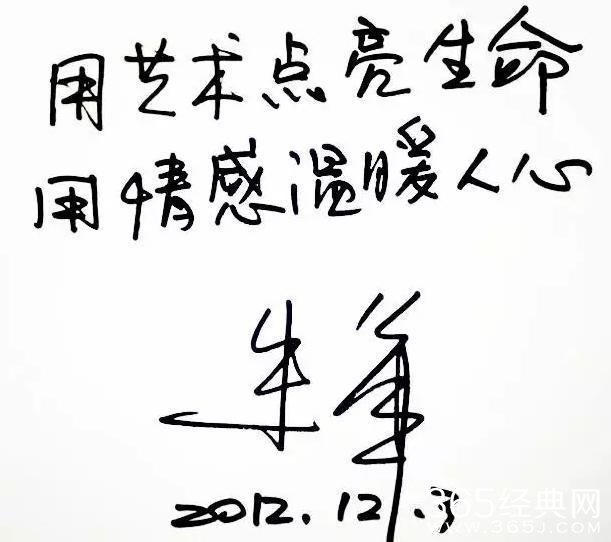 用艺术点亮生命
用情感温暖人心
2012.12.
365经典网
WWW.365J.COM